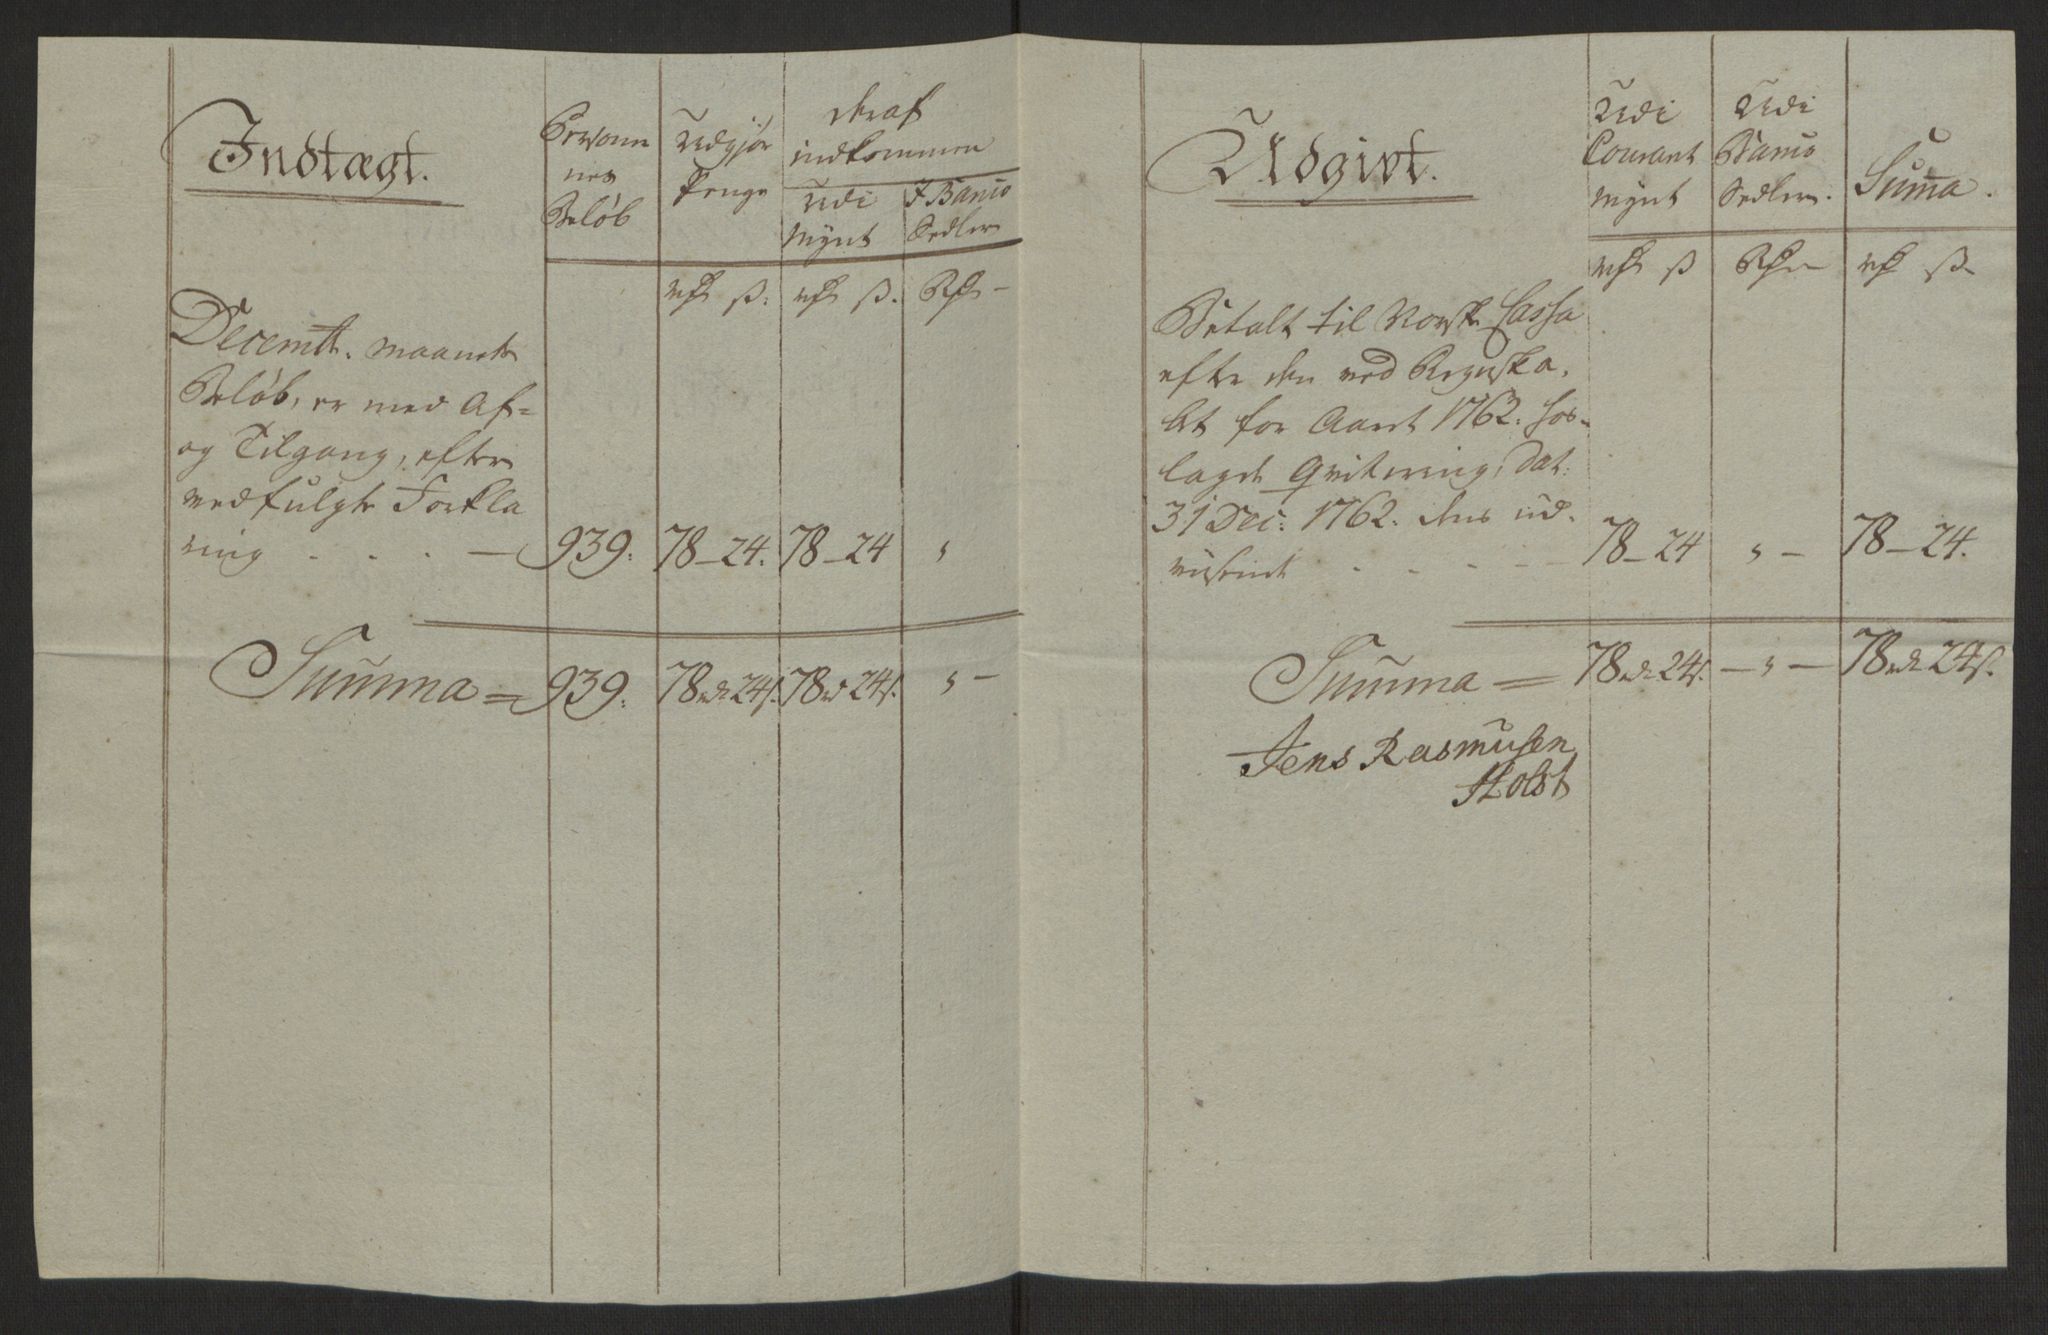 Indtægt.
Persone
nes
Beløb
Udgjør
Penge
deraf
indkommen
Udi
Mynt
I Banco
Sedler
rdr ß.
rdr ß.
Rdr –
Decembr. Maaneds
Beløb, er med Af-
og Tilgang, efter
vedfulgte Forkla
ring - - - — 939. 78 – 24. 78 – 24 "
Summa = 939. 78 rd 24 ß. 78 rd 24 ß. " –
Udgivt.
Udi
Courant
Mynt
Udi
Banco
Sedler.
Summa.
rdr ß
Rdr –
rdr ß
Betalt til Norske Cassa
efter den ved Regnska-
bet for Aaret 1762. hos-
lagde Qvitering, Dat:
31 Dec: 1762. som ud-
viisende - - - - — 78 – 24 " – 78 – 24.
Summa = 78 rd 24 ß. — " — 78 rd 24 ß.
Jens Rasmusen
Holst